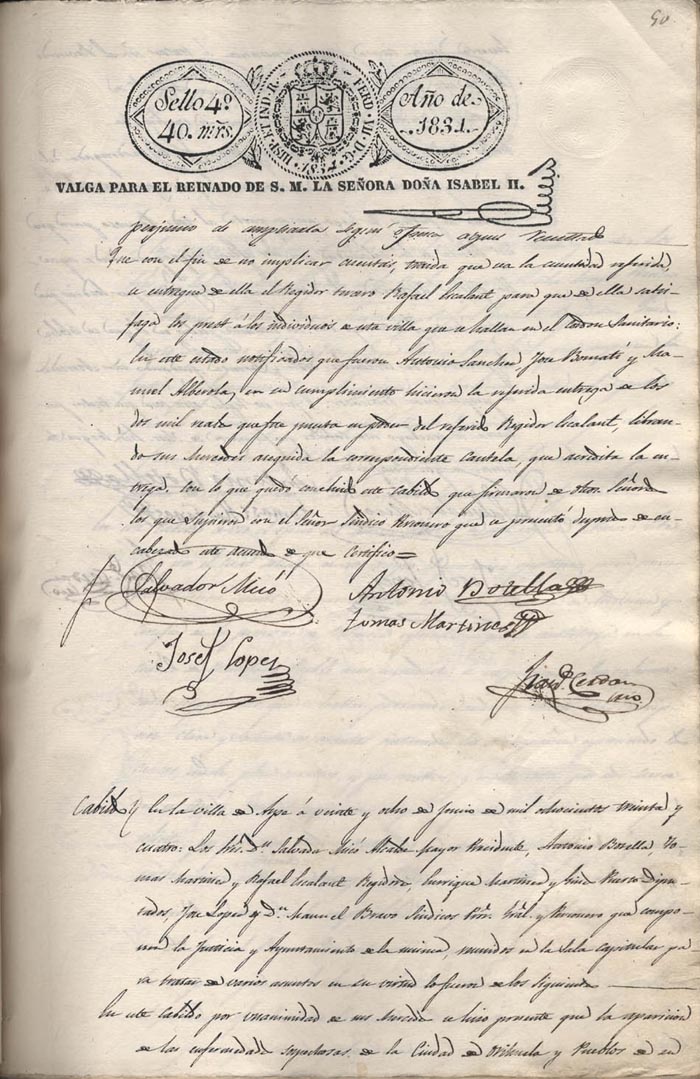 50
Sello 4º
40. mrs.
HISP. ET IND. R. FERD. VII. D. G.
Año de
1834.
VALGA PARA EL REINADO DE S. M. LA SEÑORA DOÑA ISABEL II.
perjuicio de ampliarla segun
Que con el fin de no implicar cuentas, traida que sea la cantidad referida,
se entregue de ella el Regidor tercero Rafael Escalant para que de ella satis-
faga los prest á los individuos de esta villa que se hallan en el Cordon Sanitario:
En este estado notificados que fueron Antonio Sanchez Jose Bonmatí y Ma-
nuel Alberola, en su cumplimiento hicieron la referida entrega de los
dos mil reales que fue puesta en poder del referido Regidor Escalant, libran-
do sus Mercedes enseguida la correspondiente Cautela, que acredita la en-
trega, con lo que quedó concluido este cabildo que firmaron de dhos. Señores
los que supieron con el Señor Sindico Personero que se presentó despues de en-
cabezado este acuerdo de que certifico=
Salvador Micó Antonio Botella
tomas Martines
Josef Lopez
Cabildo En la villa de Aspe á veinte y ocho de Junio de mil ochocientos treinta y
cuatro: Los Sres. Dn. Salvador Micó Alcalde mayor Presidente, Antonio Botella, To-
mas Martinez y Rafael Escalant Regidores, Enrique Martinez y Gines Puerto Dipu-
tados, Jose Lopez y Dn. Manuel Bravo Sindicos Pror. Gral. y Personero que compo-
nen la Justicia y Ayuntamiento de la misma, reunidos en la Sala capitular pa-
ra tratar de varios asuntos en su virtud lo fueron de los siguientes
En este cabildo por unanimidad de sus Mercedes se hizo presente que la aparicion
de las enfermedades sospechosas de la Ciudad de Orihuela y Pueblos de su